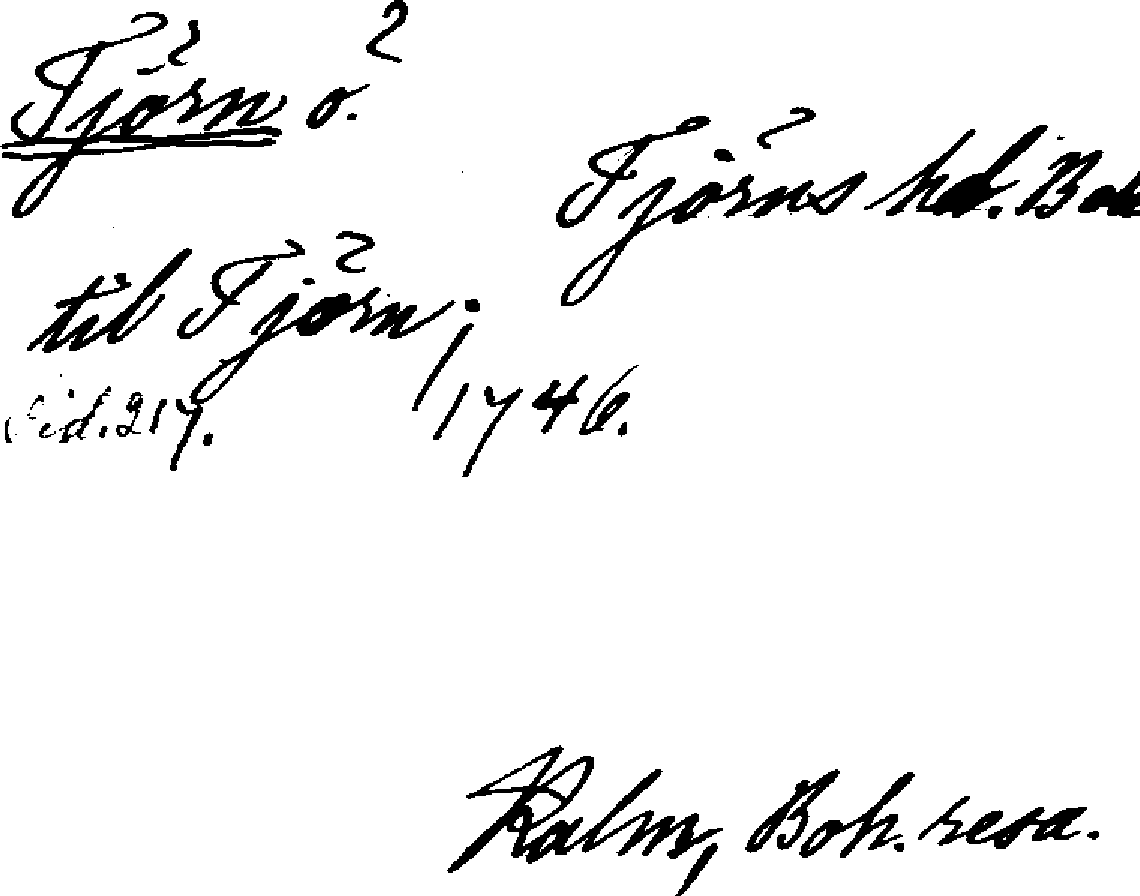 Tjörn ö.
Tjörns hd. Boh
til Tjörn;
sid. 217. 1746.
Kalm, Boh. resa.